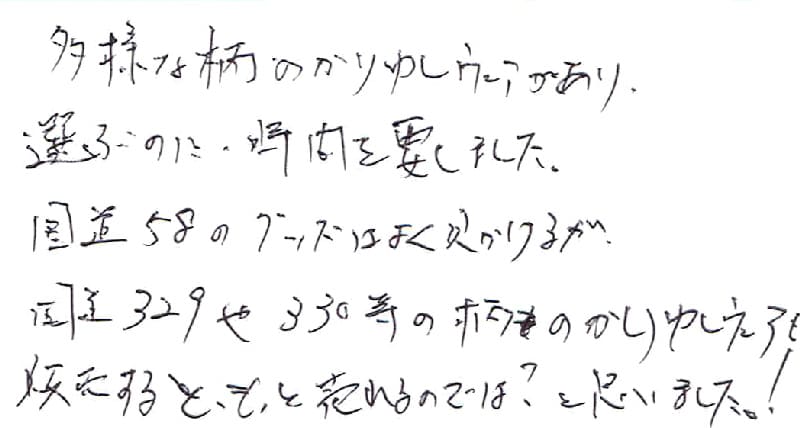 多様な柄のかりゆしウェアがあり、
選ぶのに、時間を要しました。
国道58のグッズはよく見かけるが、
国道329や330等の柄のかりゆしウェアも
販売すると、もっと売れるのでは?と思いました。!